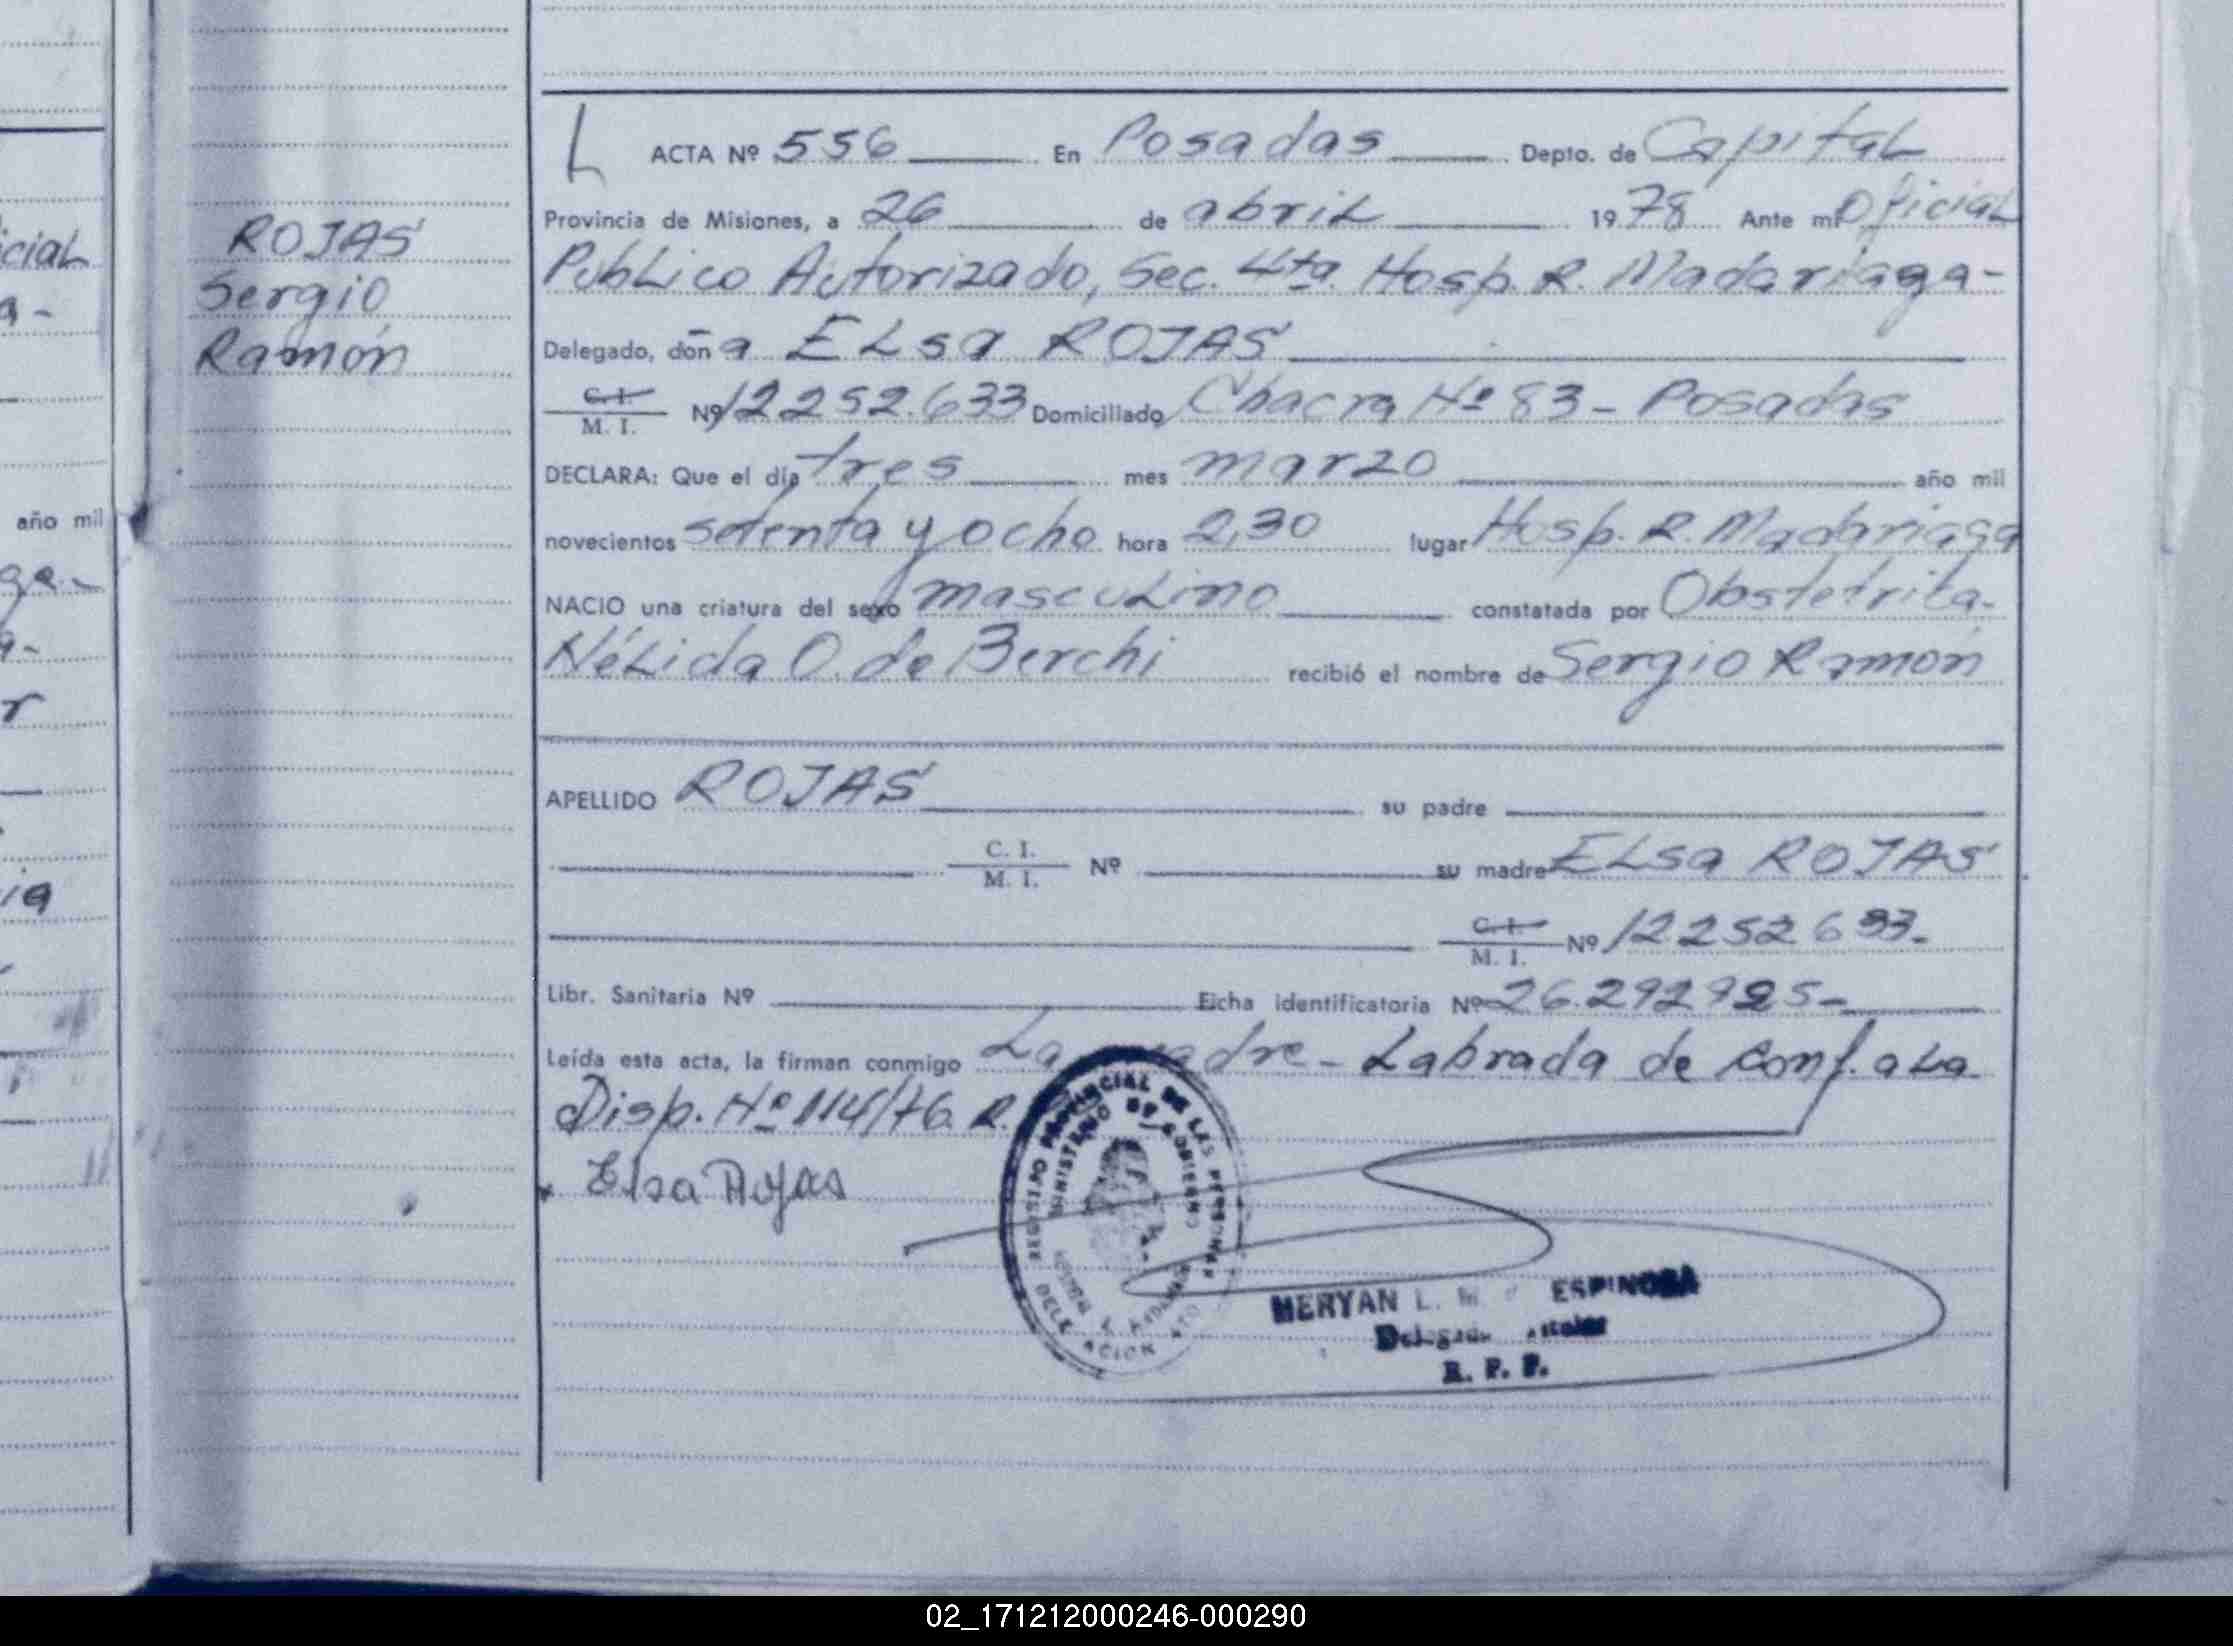 icial
a-
año mil
ga-
a-
r
ia
ROJAS
Sergio
Ramón
ACTA Nº 556 En Posadas Depto. de Capital
Provincia de Misiones, a 26 de abril 1978 Ante mi Oficial
Público Autorizado, Sec. 4ta. Hosp. R. Madariaga-
Delegado, doña ELSA ROJAS
C. I.
M. I. Nº 12252.633 Domiciliado Chacra Nº 83 - Posadas
DECLARA: Que el día tres mes marzo año mil
novecientos setenta y ocho hora 2,30 lugar Hosp. R. Madariaga
NACIO una criatura del sexo masculino constatada por Obstétrica.
Nélida O. de Berchi recibió el nombre de Sergio Ramón
APELLIDO ROJAS su padre
C. I.
M. I. Nº su madre ELSA ROJAS
C. I.
M. I. Nº 12252633.
Libr. Sanitaria Nº Ficha identificatoria Nº 26.292925-
Leída esta acta, la firman conmigo La madre - Labrada de conf. a la
Disp. Nº 114/76. R.
Elsa Rojas
REGISTRO PROVINCIAL DE LAS PERSONAS
MINISTERIO DE GOBIERNO
MERYAN L. ESPINOSA
R. P. P.
02_171212000246-000290